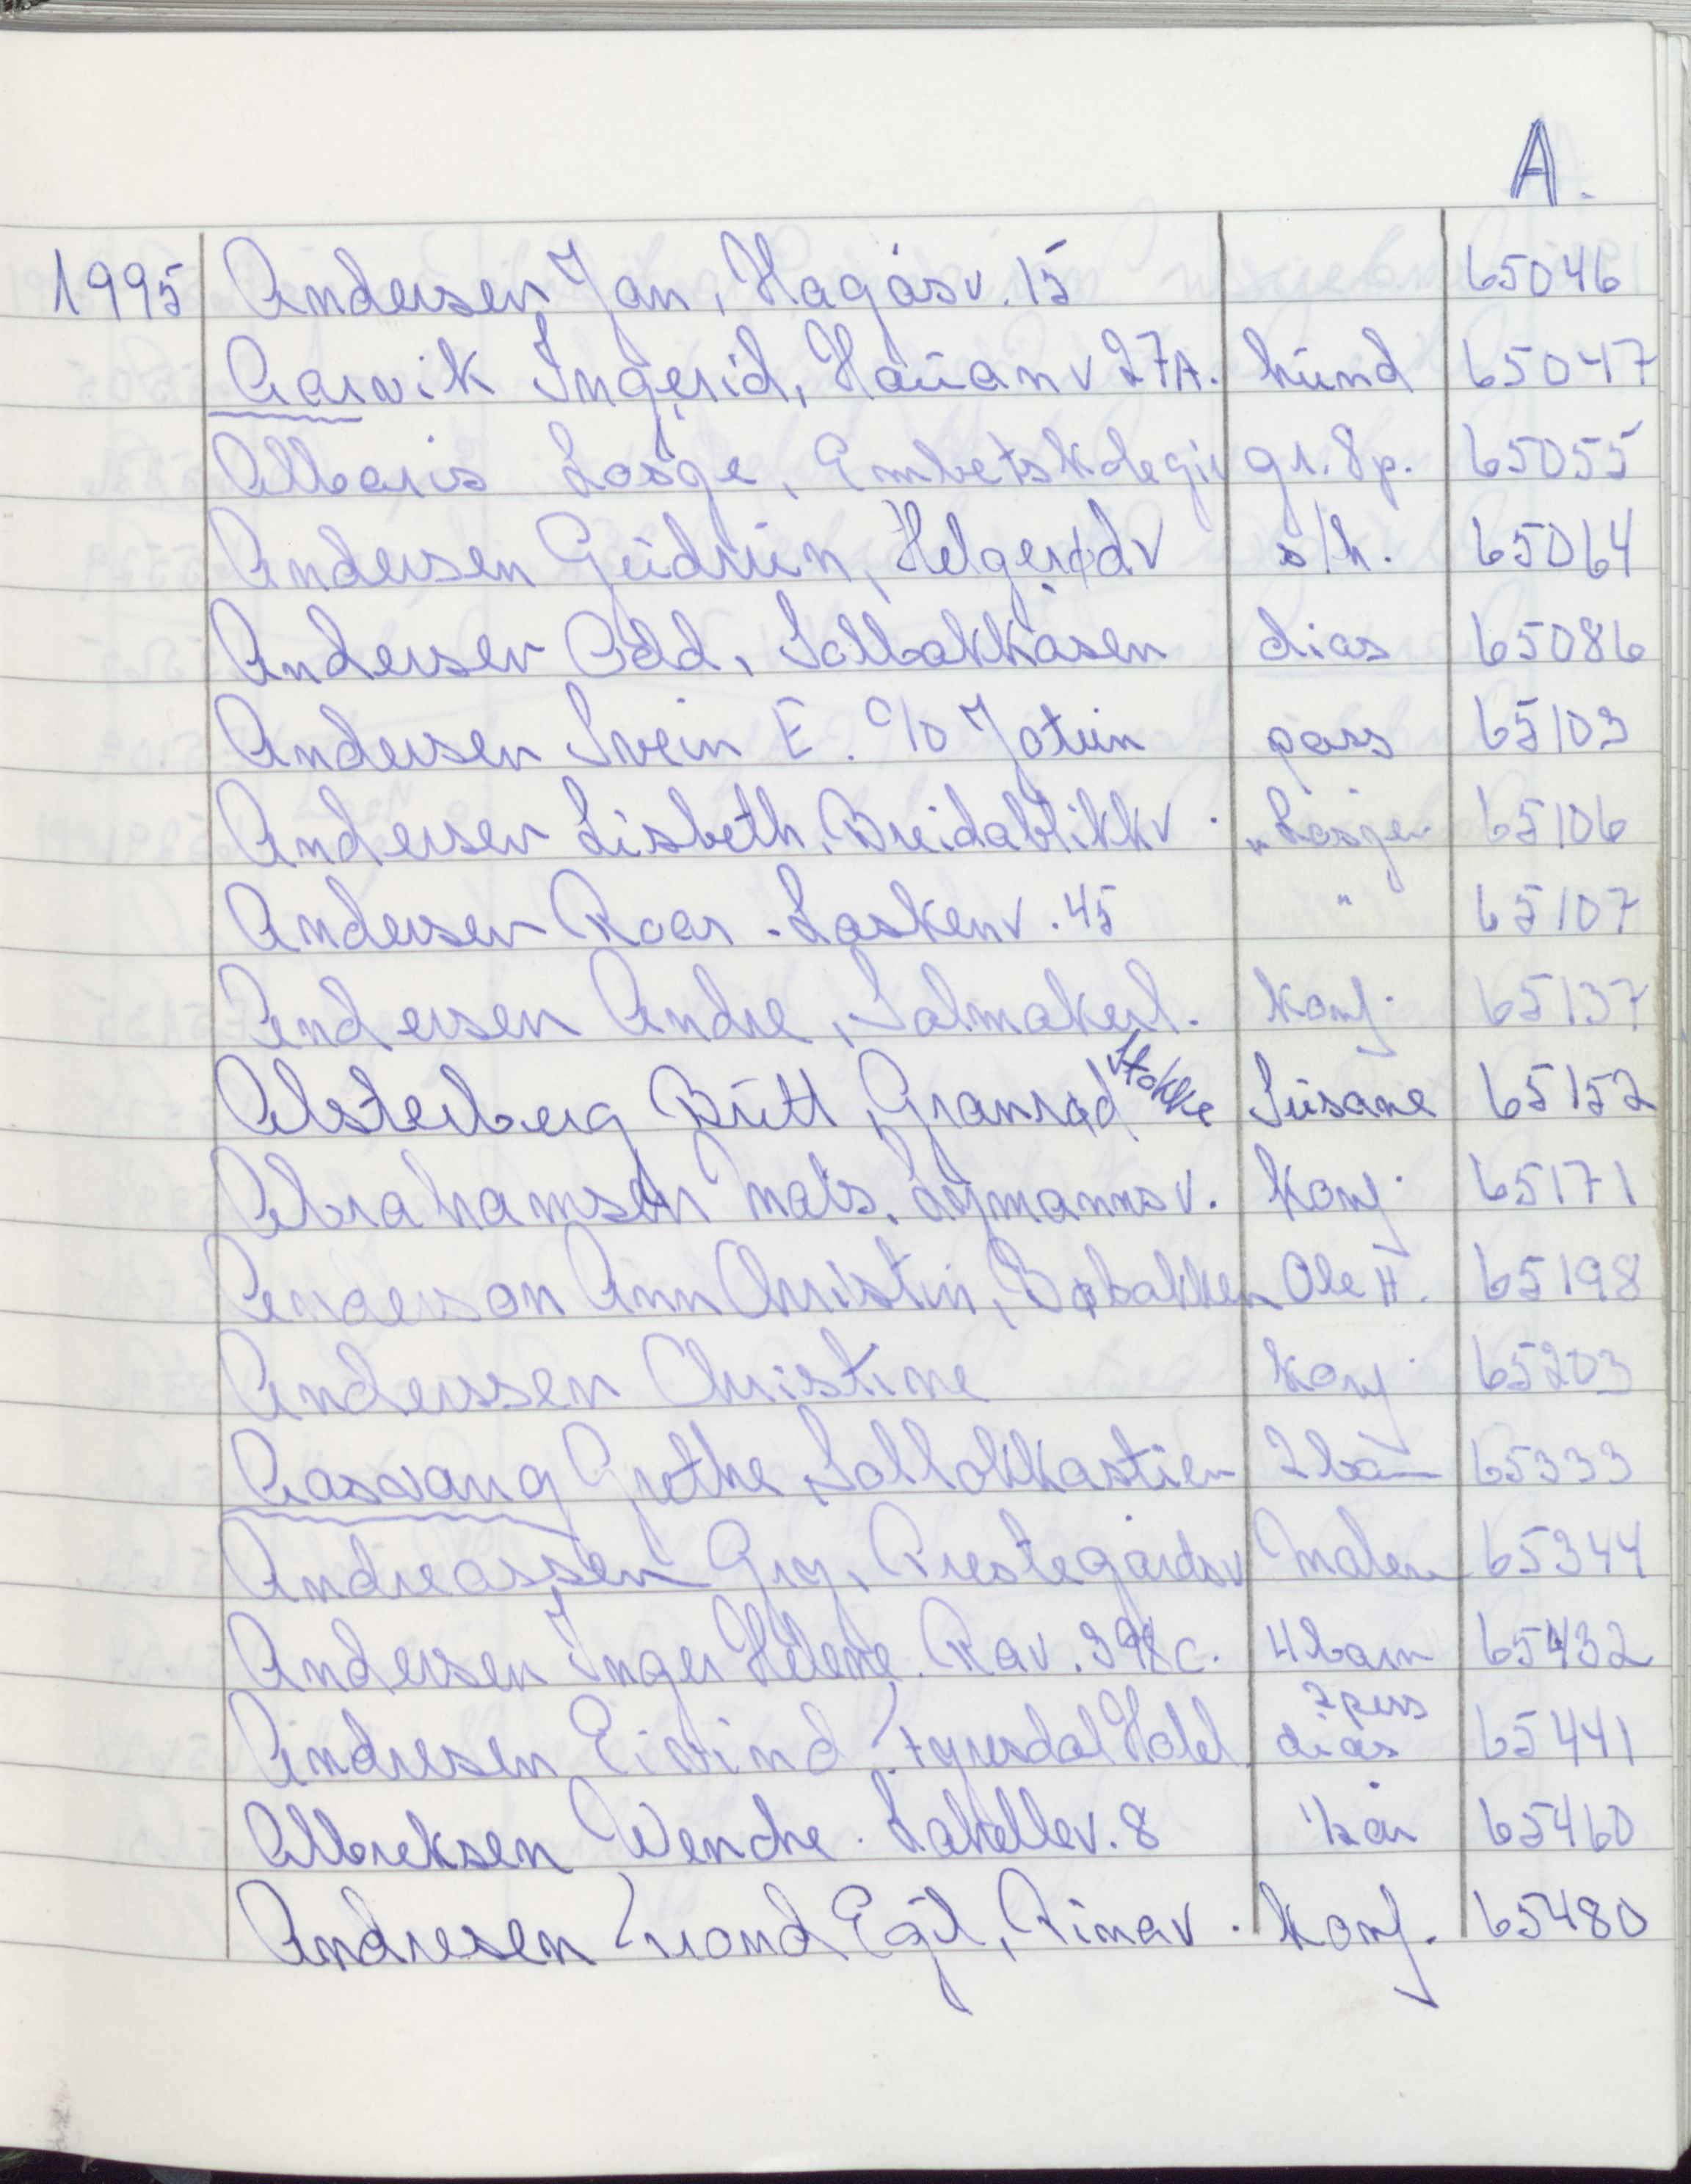 A.
1995 Andersen Jan, Hagåsv. 15 65046
Aarvik Ingerid, Hauanv 27A. hund 65047
Albaris Losge, Embetskolegie gr. 8p. 65055
Andersen Gudrun, Helgerødv s/h. 65064
Andersen Odd, Solbakkåsen dias 65086
Andersen Svein E. c/o Jotun pass 65103
Andersen Lisbeth, Breidablikkv. " Losjen 65106
Andersen Roar. Laskenv. 45 " 65107
Andersen Andre, Salmakerl. konf. 65137
Alsterberg Britt, Granrød Stokke Susane 65152
Abrahamsen Mats, Lymannsv. konf. 65171
Anderson Ann Christin, Bøbakken Ole H. 65198
Anderssen Christine konf. 65203
Aasvang Grethe, Solløkkastien 2 barn 65333
Andreassen Gry, Prestegårdsv Malen 65344
Andersen Inger Helene. Rav. 398c. 4 barn 65432
Andresen Eivind Fyresdal Hotel, 7 pers dias 65441
Albreksen Wenche. Lakollev. 8 1/2 år 65460
Andresen Trond Egil, Rimav. konf. 65480